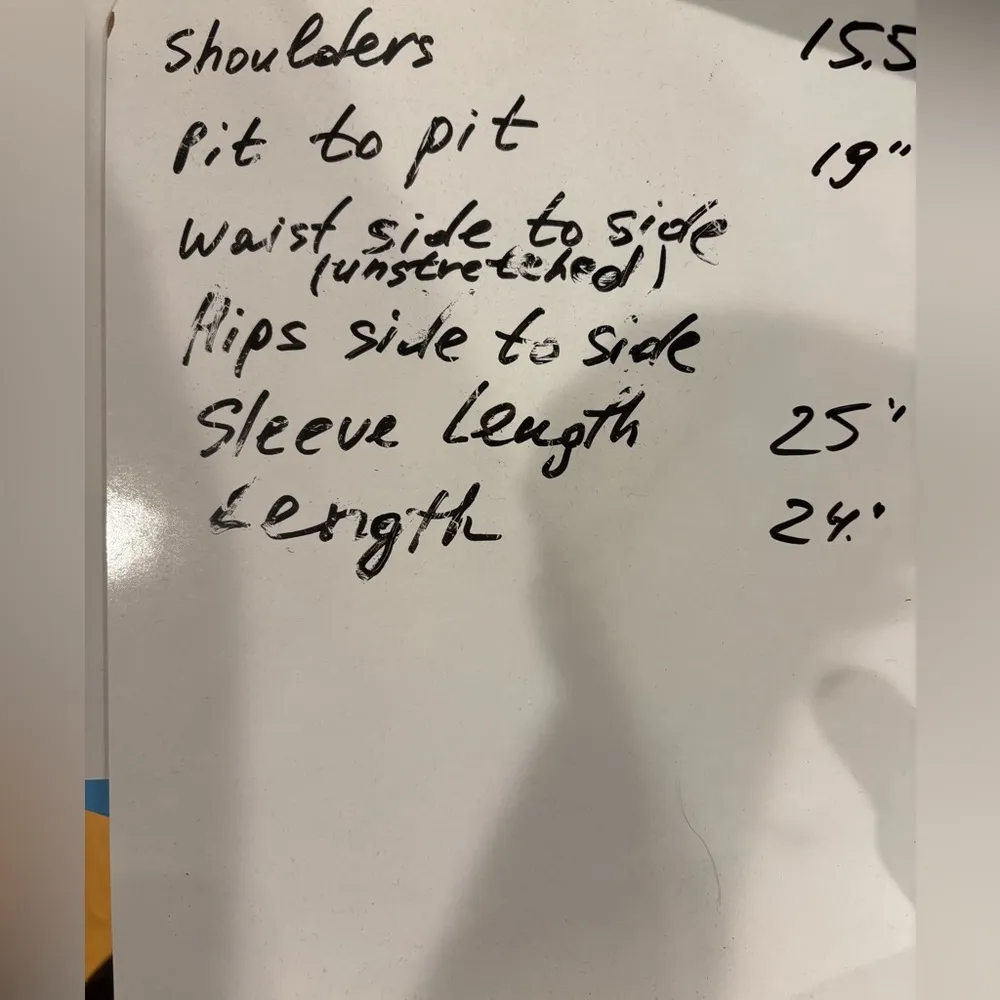 Shoulders 15.5
Pit to pit 19"
Waist side to side
(unstretched)
Hips side to side
Sleeve Length 25"
Length 24"